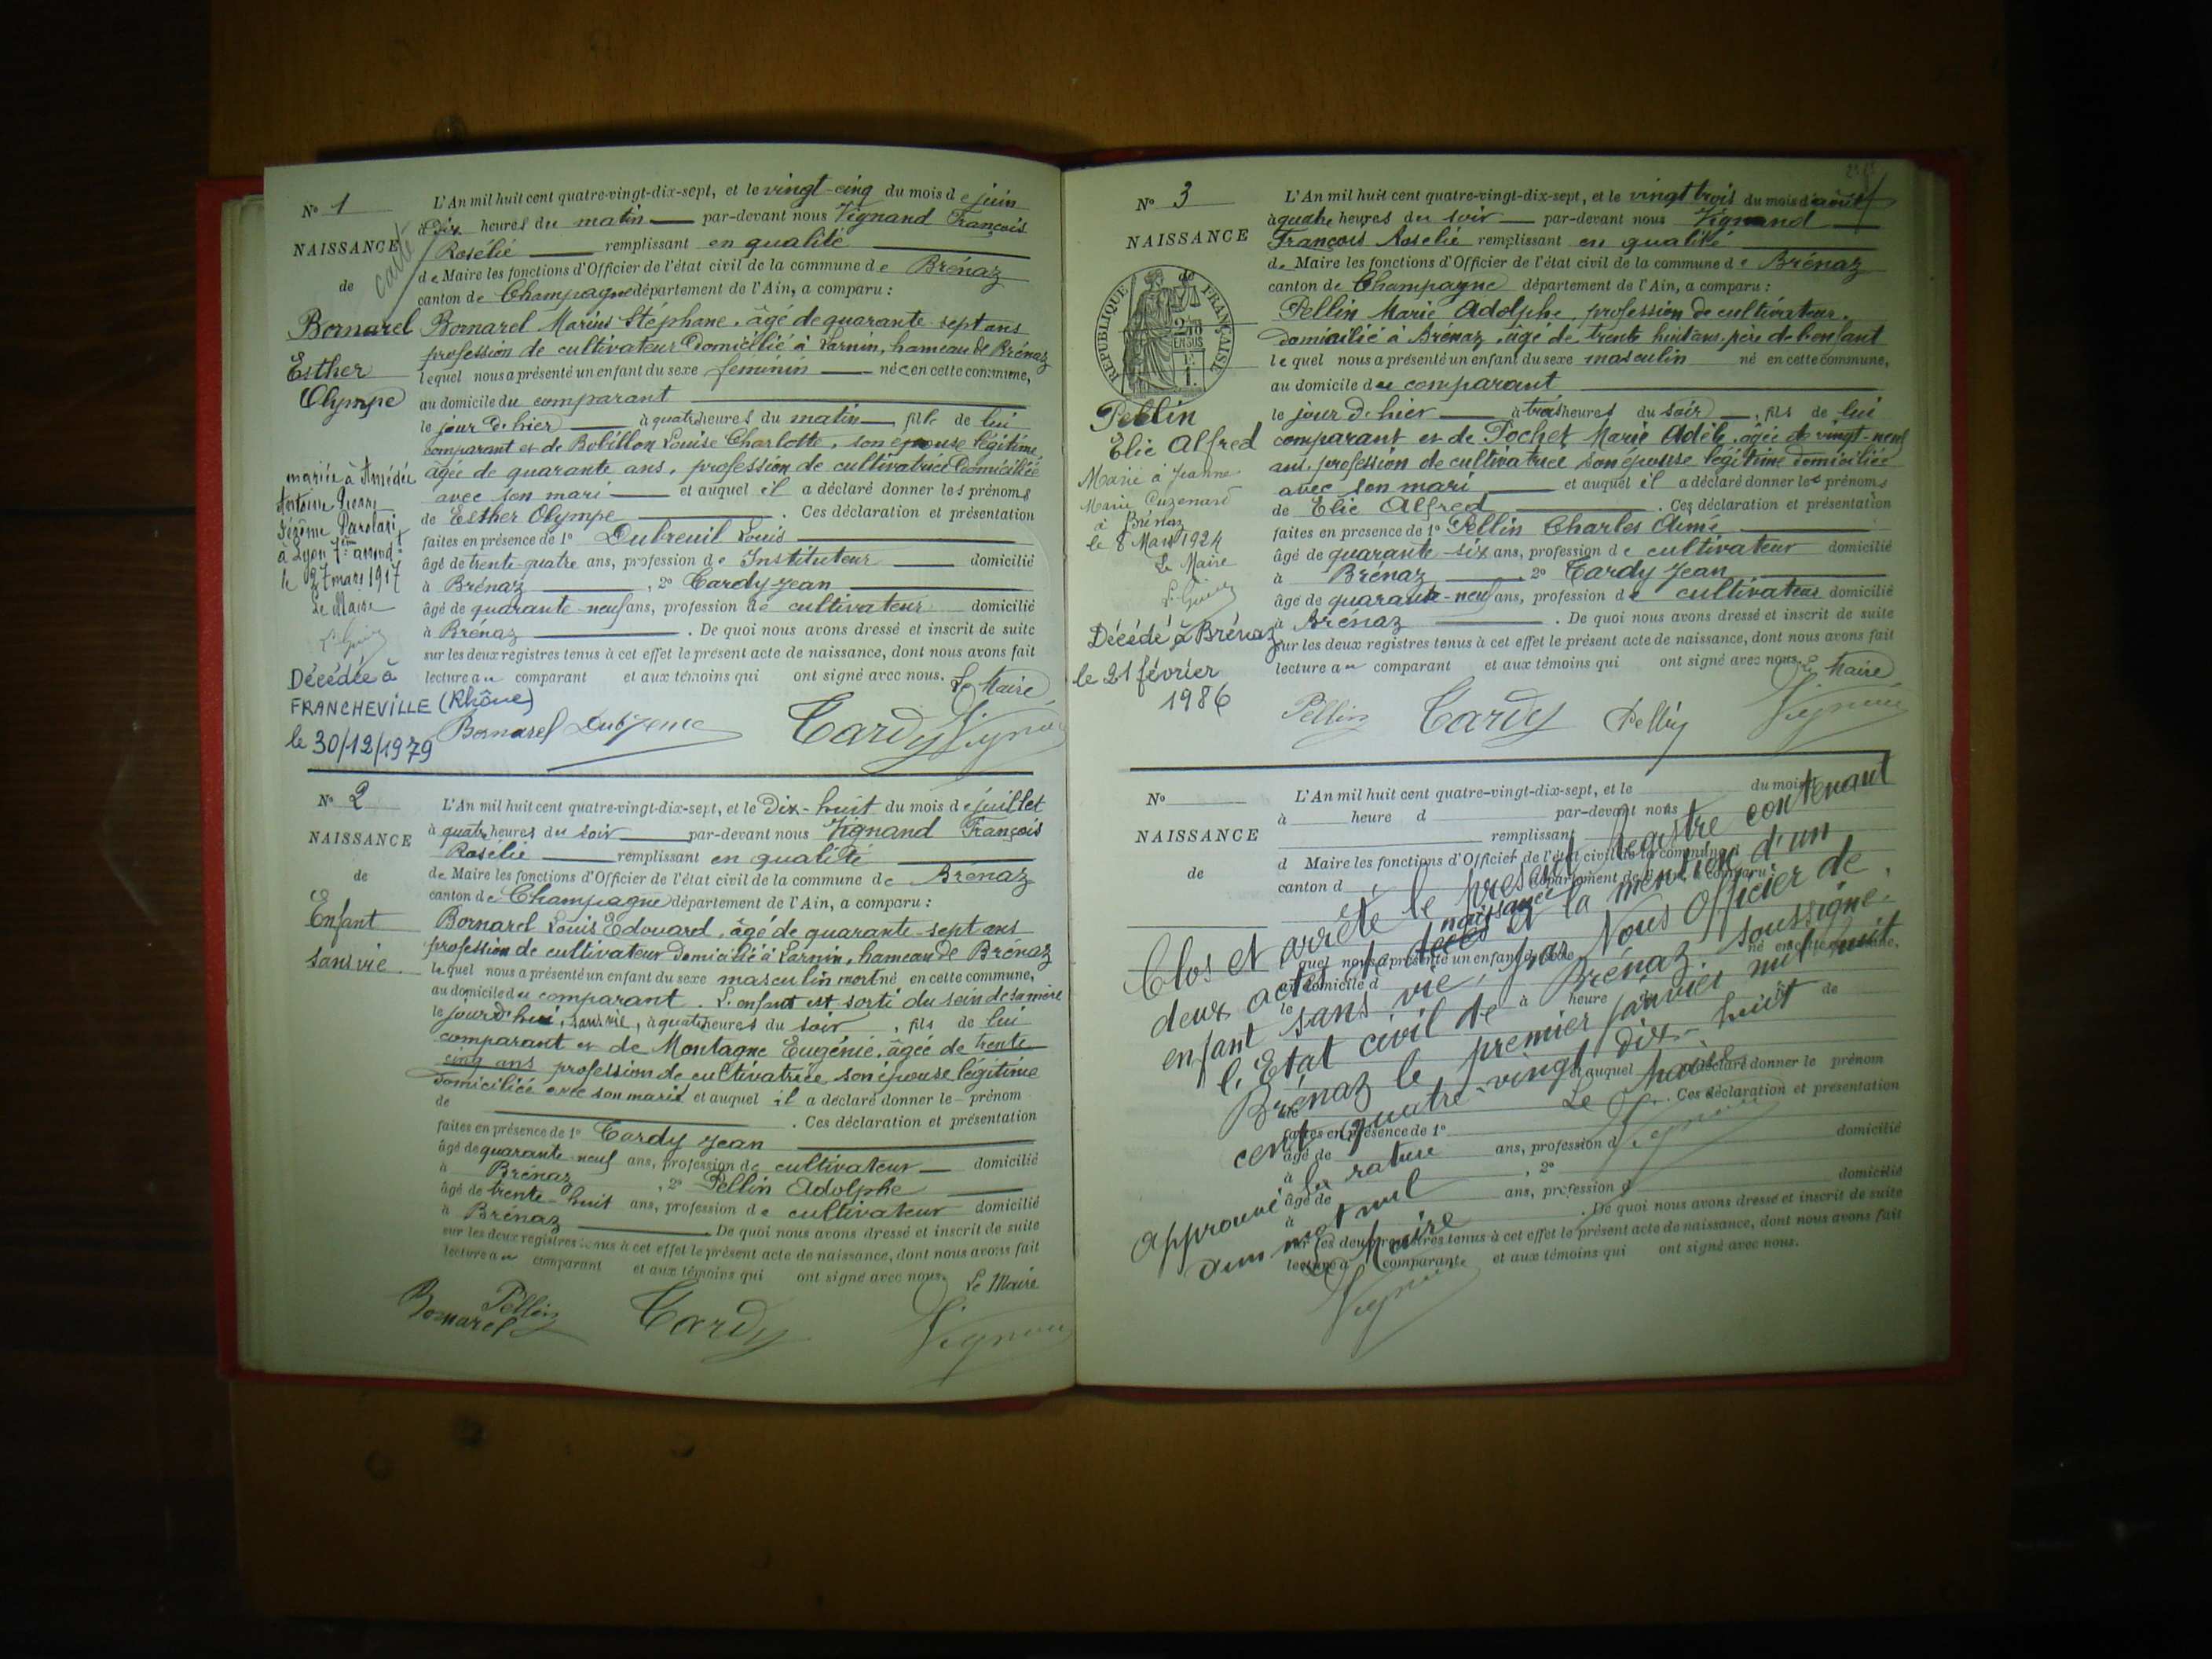 N° 1
NAISSANCE
de
carte
Bornarel
Esther
Olympe
mariée à Amédée
Antoine Pierre
Jérôme Parolari
à Lyon 7ème arrondt
le 27 mars 1917
Le Maire
Décédée à
FRANCHEVILLE (Rhône)
le 30/12/1979
L'An mil huit cent quatre-vingt-dix-sept, et le vingt-cinq du mois de juin
à Dix heures du matin par-devant nous Vignand François
Rosélie remplissant en qualité
de Maire les fonctions d'Officier de l'état civil de la commune de Brénaz
canton de Champagne département de l'Ain, a comparu :
Bornarel Marius Stéphane, âgé de quarante-sept ans
profession de cultivateur Domicilié à Larnin, hameau de Brénaz
lequel nous a présenté un enfant du sexe féminin née en cette commune,
au domicile du comparant
le jour d'hier à quatre heures du matin fille de lui
comparant et de Bobillon Louise Charlotte, son épouse légitime,
âgée de quarante ans, profession de cultivatrice Domiciliée
avec son mari et auquel il a déclaré donner les prénoms
de Esther Olympe . Ces déclaration et présentation
faites en présence de 1° Dubreuil Louis
âgé de trente-quatre ans, profession de Instituteur domicilié
à Brénaz , 2° Tardy Jean
âgé de quarante-neuf ans, profession de cultivateur domicilié
à Brénaz . De quoi nous avons dressé et inscrit de suite
sur les deux registres tenus à cet effet le présent acte de naissance, dont nous avons fait
lecture au comparant et aux témoins qui ont signé avec nous. Le Maire
Bornarel Tardy
N° 2
NAISSANCE
de
Enfant
sans vie.
L'An mil huit cent quatre-vingt-dix-sept, et le Dix-huit du mois de juillet
à quatre heures du soir par-devant nous Vignand François
Rosélie remplissant en qualité
de Maire les fonctions d'Officier de l'état civil de la commune de Brénaz
canton de Champagne département de l'Ain, a comparu :
Bornarel Louis Edouard, âgé de quarante-sept ans
profession de cultivateur domicilié à Larnin, hameau de Brénaz
lequel nous a présenté un enfant du sexe masculin mort né en cette commune,
au domicile du comparant. L'enfant est sorti du sein de sa mère
le jour d'hui, sans vie, à quatre heures du soir , fils de lui
comparant et de Montagne Eugénie, âgée de trente
cinq ans profession de cultivatrice son épouse légitime
domiciliée avec son mari et auquel il a déclaré donner le prénom
de . Ces déclaration et présentation
faites en présence de 1° Tardy Jean
âgé de quarante-neuf ans, profession de cultivateur domicilié
à Brénaz , 2° Pellin Adolphe
âgé de trente-huit ans, profession de cultivateur domicilié
à Brénaz . De quoi nous avons dressé et inscrit de suite
sur les deux registres tenus à cet effet le présent acte de naissance, dont nous avons fait
lecture au comparant et aux témoins qui ont signé avec nous. Le Maire
Pellin
Bornarel Tardy
N° 3
NAISSANCE
de
REPUBLIQUE FRANÇAISE
2/10 EN SUS
Pellin
Elie Alfred
Marié à Jeanne
Marie Cuzenard
à Brénaz
le 8 Mars 1924
Le Maire
Décédé à Brénaz
le 21 février
1986
L'An mil huit cent quatre-vingt-dix-sept, et le vingt trois du mois d'août
à quatre heures du soir par-devant nous Vignand
François Rosélie remplissant en qualité
de Maire les fonctions d'Officier de l'état civil de la commune de Brénaz
canton de Champagne département de l'Ain, a comparu :
Pellin Marie Adolphe, profession de cultivateur,
Domicilié à Brénaz, âgé de trente huit ans, père de l'enfant
lequel nous a présenté un enfant du sexe masculin né en cette commune,
au domicile du comparant
le jour d'hier à trois heures du soir , fils de lui
comparant et de Pochet Marie Adèle, âgée de vingt-neuf
ans, profession de cultivatrice son épouse légitime domiciliée
avec son mari et auquel il a déclaré donner les prénoms
de Elie Alfred . Ces déclaration et présentation
faites en présence de 1° Pellin Charles Aimé
âgé de quarante-six ans, profession de cultivateur domicilié
à Brénaz , 2° Tardy Jean
âgé de quarante-neuf ans, profession de cultivateur domicilié
à Brénaz . De quoi nous avons dressé et inscrit de suite
sur les deux registres tenus à cet effet le présent acte de naissance, dont nous avons fait
lecture au comparant et aux témoins qui ont signé avec nous. Le Maire
Pellin Tardy Pellin
N°
NAISSANCE
de
L'An mil huit cent quatre-vingt-dix-sept, et le du mois
à heure d par-devant nous
remplissant
d Maire les fonctions d'Officier de l'état civil de la commune d
canton d département de l'Ain, a comparu :
quel nous a présenté un enfant du sexe né en cette commune,
au domicile d
le à heure de
et auquel a déclaré donner le prénom
de . Ces déclaration et présentation
faites en présence de 1°
âgé de ans, profession d domicilié
à , 2°
âgé de ans, profession d domicilié
à . De quoi nous avons dressé et inscrit de suite
sur les deux registres tenus à cet effet le présent acte de naissance, dont nous avons fait
lecture a comparant et aux témoins qui ont signé avec nous.
Clos et arrêté le présent registre contenant
naissance
deux actes de décès et la mention d'un
enfant sans vie, par Nous Officier de
l'Etat civil de Brénaz, soussigné.
Brénaz le premier janvier mil huit
cent quatre-vingt dix-huit
Le Maire
Approuvé la rature
d'un mot nul
Le Maire